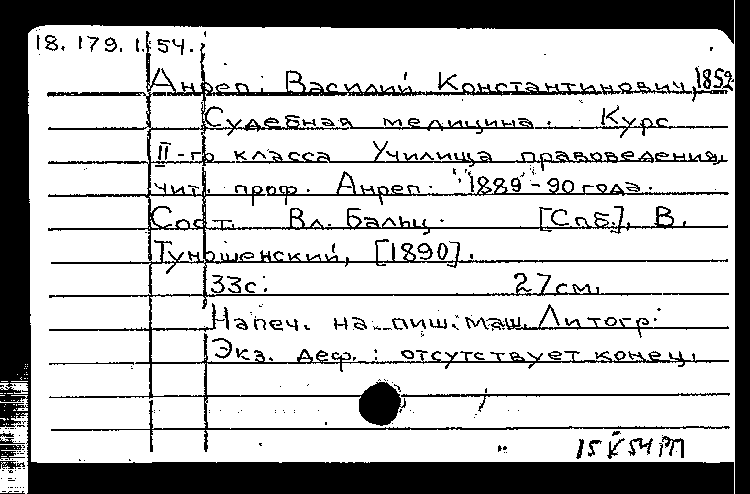 18. 179. 1. 54.
Анреп, Василий Константинович, 1852-
Судебная медицина. Курс
II-го класса Училища правоведения,
чит. проф. Анреп. 1889-90 года.
Сост. Вл. Бальц. [Спб.], В.
Туношенский, [1890].
33с. 27см.
Напеч. на пиш. маш. Литогр.
Экз. деф.: отсутствует конец.
15 V 54 РП